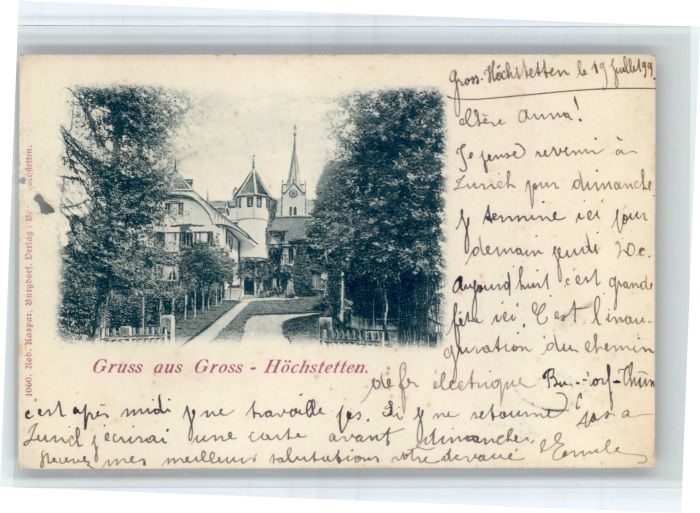 Gross-Höchstetten le 19 Juillet 99
Chère Anna!
Je pense revenir à
Zurich pour dimanche
je termine ici pour
demain jeudi 20c.
Aujourd'huit c'est grande
fête ici. C'est l'inau-
guration du chemin
de fr électrique Bur-dorf-Thun
c'est après midi je ne travaille pas. Si je ne retourne pas a
Zurich j'ecrirai une carte avant dimanche.
Recevez mes meilleurs salutations votre devoué Emile
Gruss aus Gross - Höchstetten.
1060. Rob. Kaspar, Burgdorf. Verlag: